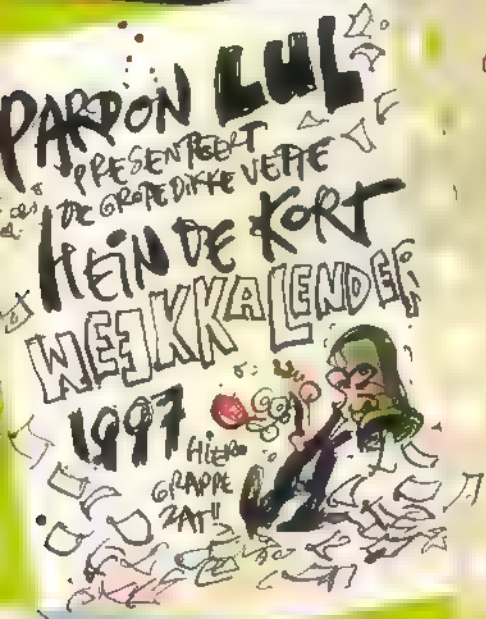 PARDON LUL
PRESENTEERT
DE GROTE DIKKE VETTE
HEIN DE KORT
WEEKKALENDER
1997
HIERO
GRAPPE
ZAT!!